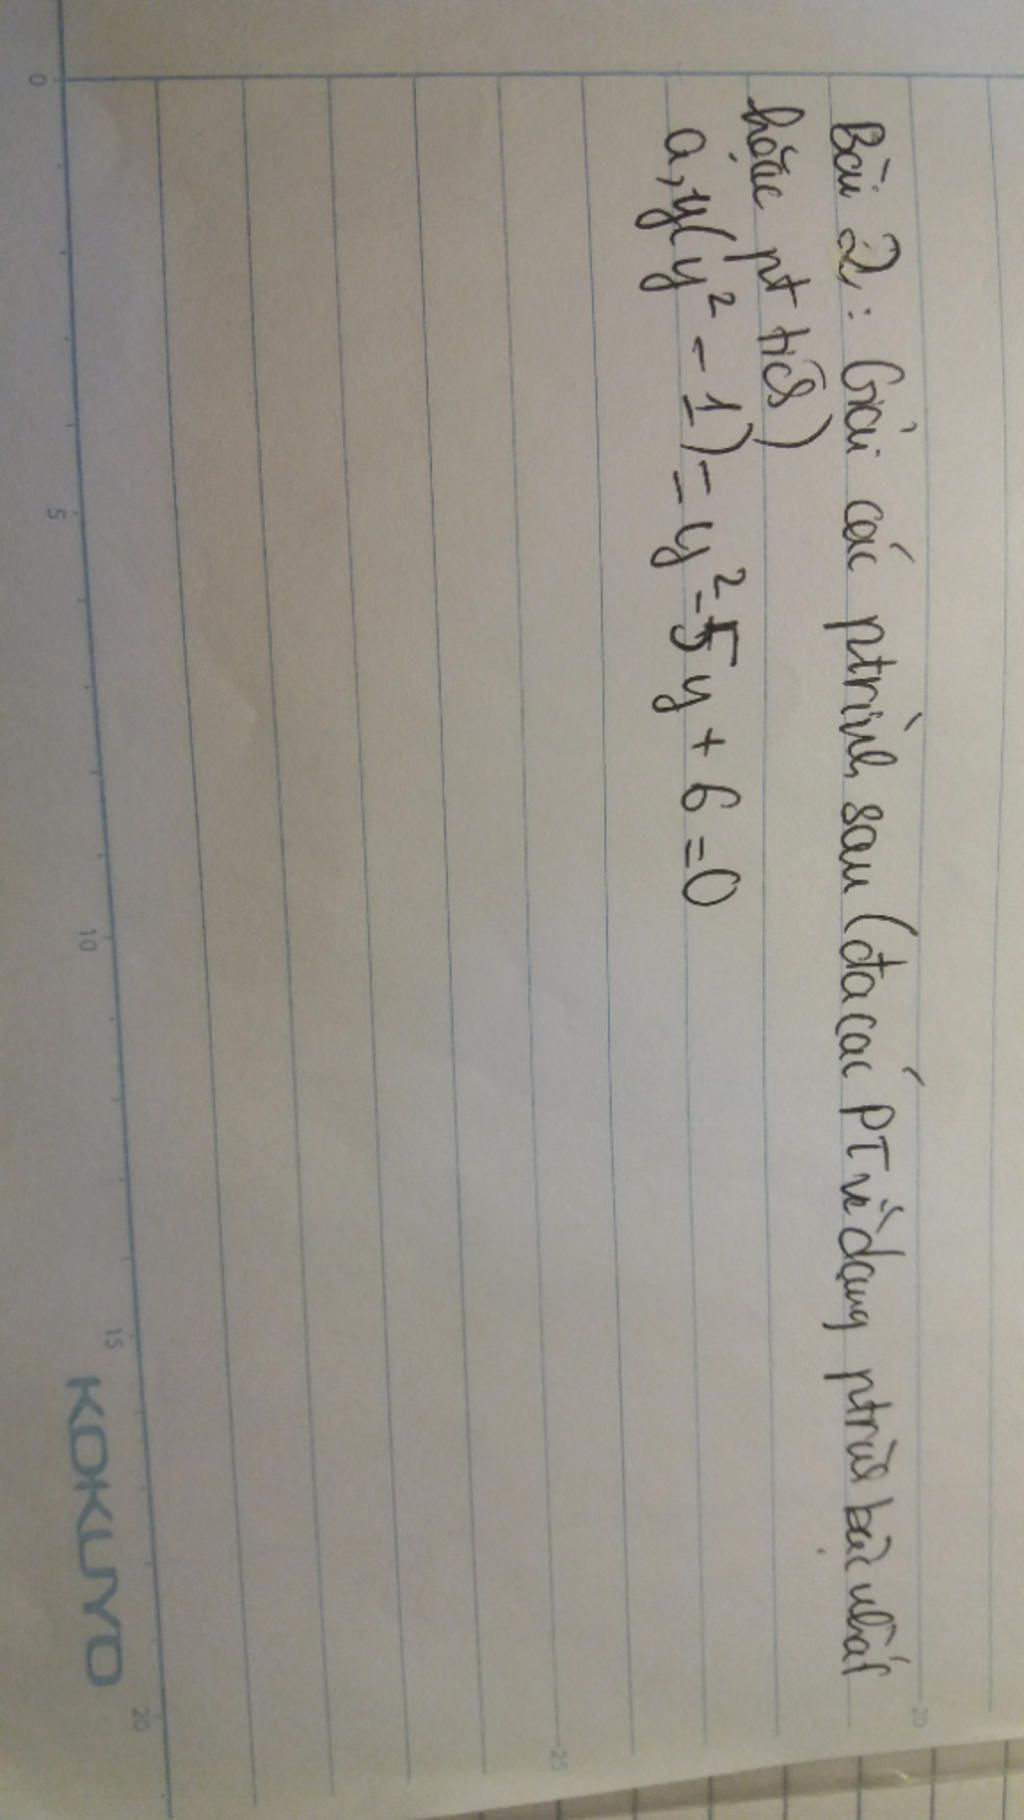 Bài 2: Giải các ptrình sau (đa các PT về dạng ptrình bậc nhất
hoặc pt tích)
a, y(y² - 1) = y² - 5y + 6 = 0
0
5
10
15
20
20
25
KOKUYO